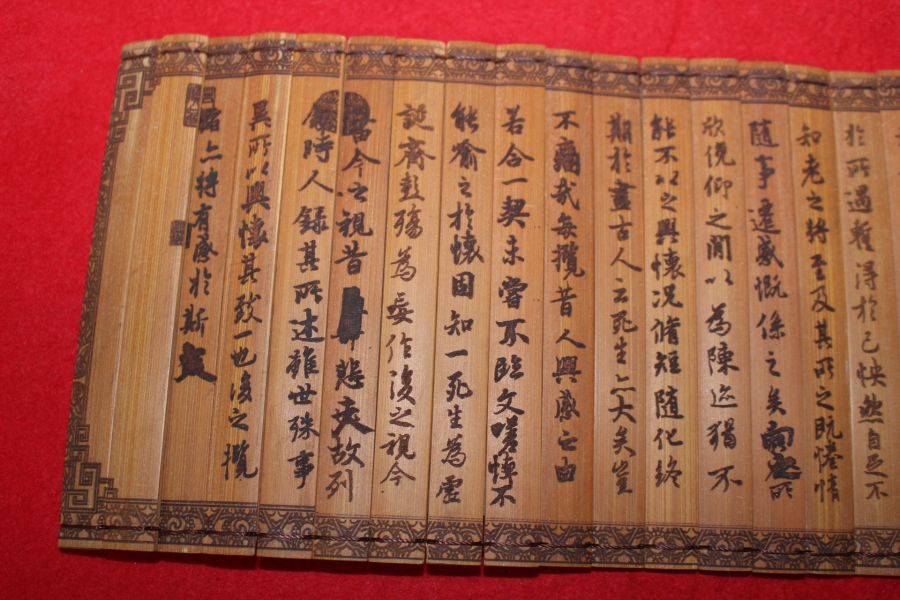 於所遇蹔得於己怏然自足不
知老之將至及其所之既惓情
隨事遷感慨係之矣向之所
欣俛仰之閒以為陳迹猶不
能不以之興懷況脩短隨化終
期於盡古人云死生亦大矣豈
不痛哉每攬昔人興感之由
若合一契未嘗不臨文嗟悼不
能喻之於懷固知一死生為虛
誕齊彭殤為妄作後之視今
今之視昔悲夫故列
敘時人錄其所述雖世殊事
異所以興懷其致一也後之攬
者亦將有感於斯文